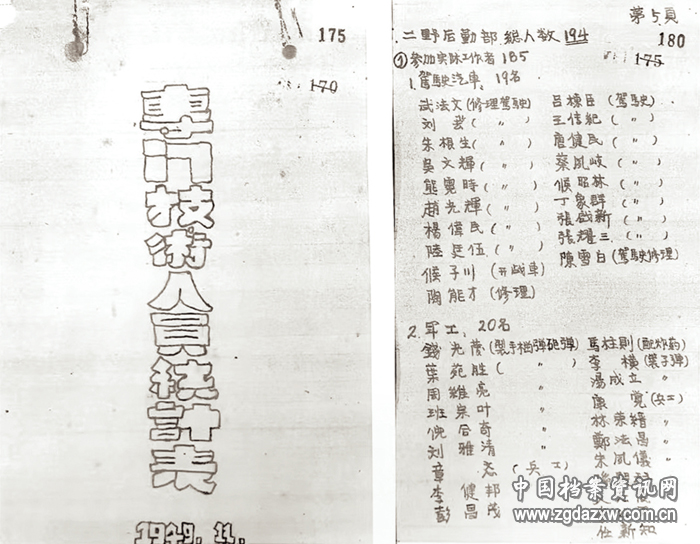 175
170
專门技術人員统計表
1949.11.
第5頁
180
175
二野后勤部 總人数 194
①参加实际工作者 185
1.駕駛汽車 19名
武法文(修理駕駛) 吕棟臣(駕駛)
刘 (〃) 王信紀(〃)
朱根生(〃) 唐健民(〃)
吳文輝(〃) 蔡凤岐(〃)
熊霓時(〃) 侯昭林(〃)
趙光輝(〃) 丁象群(〃)
楊偉民(〃) 張啟新(〃)
陸廷伍(〃) 張耀三(〃)
侯子川(开战車) 陳雪白(駕駛修理)
陶能才(修理)
2.军工 20名
錢光蔭(製手榴弹砲弹) 馬柱則(配炸药)
葉苑胜(〃) 李横(製子弹)
周維亮 〃 湯成立 〃
班崇叶 〃 康寬(兵工)
倪合奇 〃 林東縉 〃
刘雅清 〃 鄭法昌 〃
章 (兵工) 朱凤儀 〃
李健邦
彭昌茂
任新知
中国档案资讯网
www.zgdazxw.com.cn